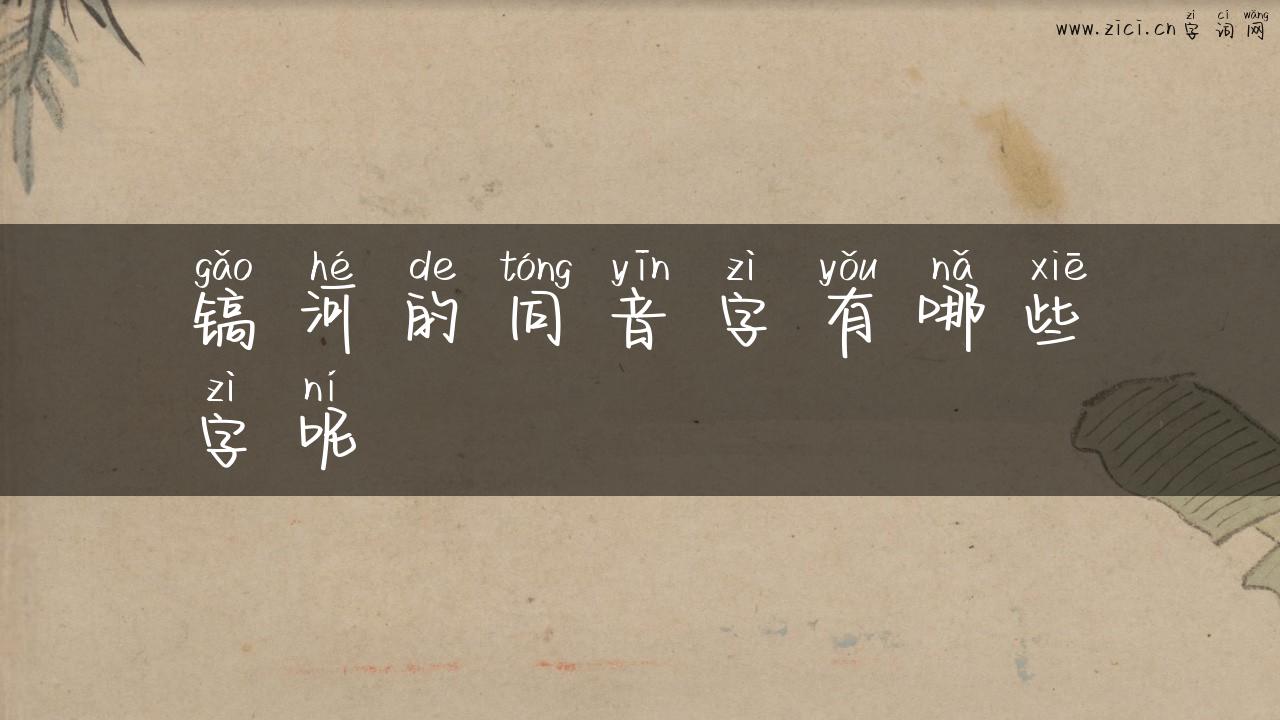 zì cí wǎng
www.zici.cn 字词网
gǎo hé de tóng yīn zì yǒu nǎ xiē
镐河的同音字有哪些
zì ní
字呢